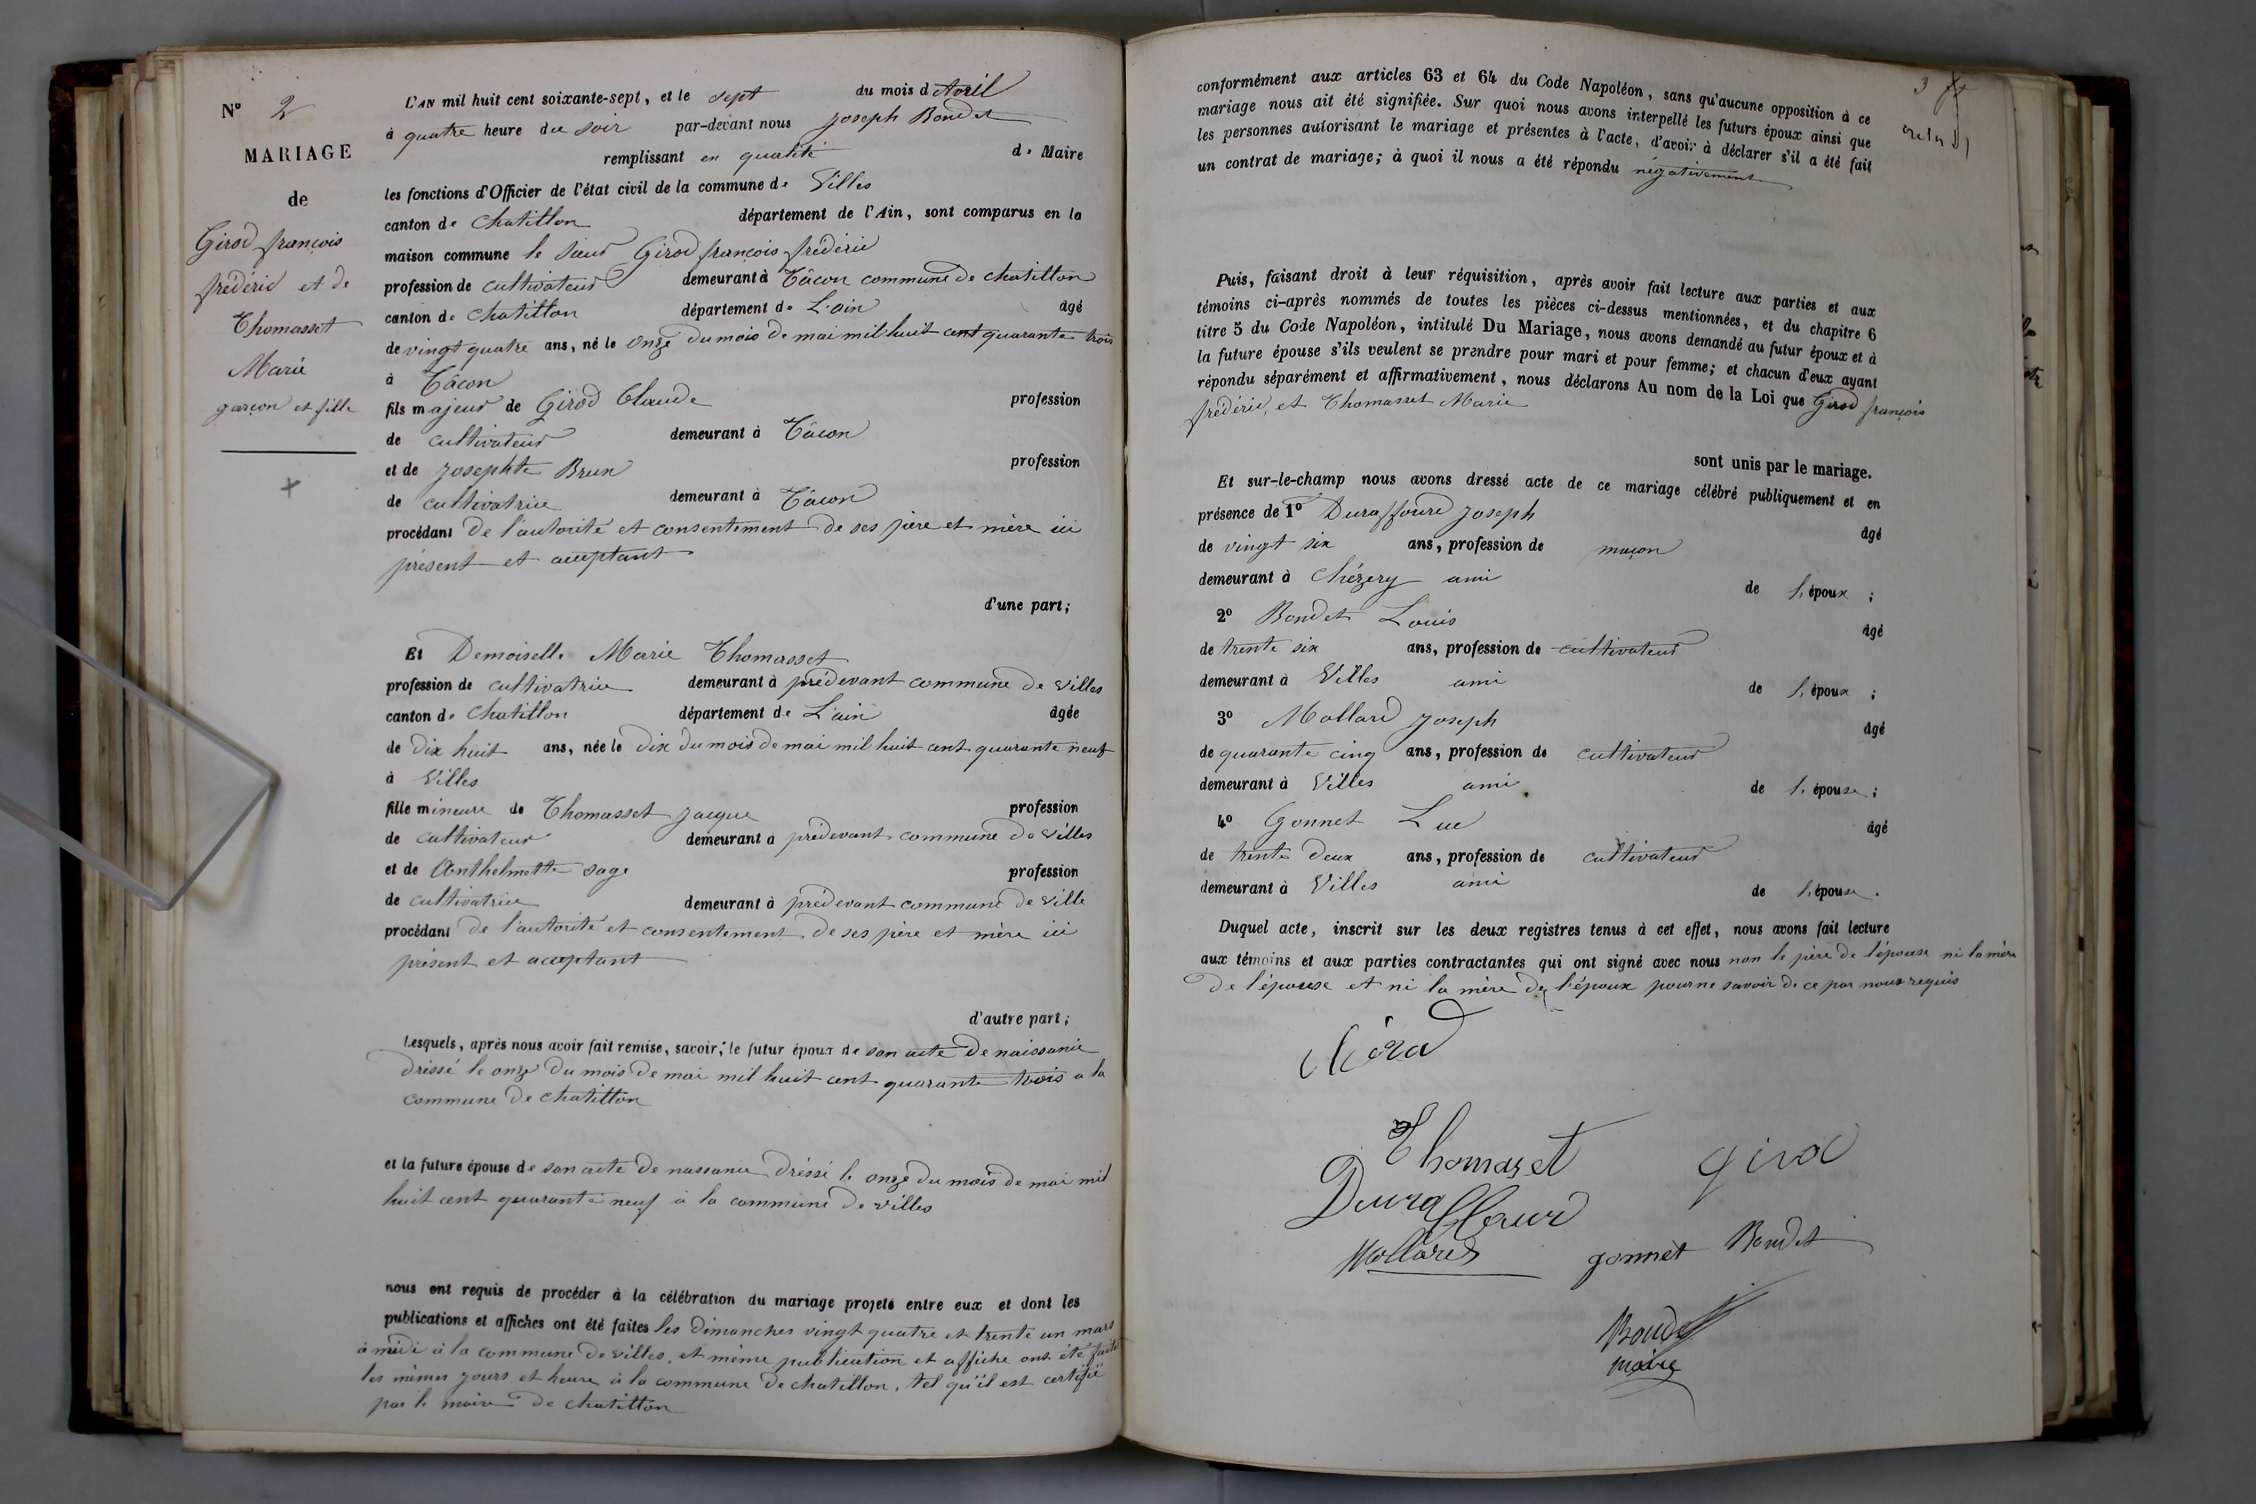 N° 2
MARIAGE
de
Girod françois
frédéric et de
Thomasset
Marie
garçon et fille
L'AN mil huit cent soixante-sept, et le sept du mois d'Avril
à quatre heure du soir par-devant nous joseph Bondet
remplissant en qualité de Maire
les fonctions d'Officier de l'état civil de la commune de Villes
canton de Chatillon département de l'Ain, sont comparus en la
maison commune le sieur Girod françois frédéric
profession de cultivateur demeurant à Tâcon commune de chatillon
canton de Chatillon département de L'ain âgé
de vingt quatre ans, né le onze du mois de mai mil huit cent quarante trois
à Tâcon
fils majeur de Girod Claude profession
de cultivateur demeurant à Tâcon
et de josephte Brun profession
de cultivatrice demeurant à Tâcon
procédant de l'autorité et consentement de ses père et mère ici
présent et acceptant
d'une part;
Et Demoiselle Marie Thomasset
profession de cultivatrice demeurant à prédevant commune de villes
canton de Chatillon département de L'ain âgée
de dix huit ans, née le dix du mois de mai mil huit cent quarante neuf
à Villes
fille mineure de Thomasset jacque profession
de cultivateur demeurant a prédevant commune de villes
et de Anthelmette sage profession
de cultivatrice demeurant à prédevant commune de ville
procédant de l'autorité et consentement de ses père et mère ici
présent et acceptant
d'autre part;
Lesquels, après nous avoir fait remise, savoir; le futur époux de son acte de naissance
dréssé le onze du mois de mai mil huit cent quarante trois a la
commune de chatillon
et la future épouse de son acte de naissance dréssé le onze du mois de mai mil
huit cent quarante neuf à la commune de villes
nous ont requis de procéder à la célébration du mariage projeté entre eux et dont les
publications et affiches ont été faites les dimanches vingt quatre et trente un mars
à midi à la commune de villes, et même publication et affiche ont été faites
les mêmes jours et heure à la commune de chatillon, tel qu'il est certifié
par le maire de chatillon
3
conformément aux articles 63 et 64 du Code Napoléon, sans qu'aucune opposition à ce
mariage nous ait été signifiée. Sur quoi nous avons interpellé les futurs époux ainsi que
les personnes autorisant le mariage et présentes à l'acte, d'avoir à déclarer s'il a été fait
un contrat de mariage; à quoi il nous a été répondu négativement
Puis, faisant droit à leur réquisition, après avoir fait lecture aux parties et aux
témoins ci-après nommés de toutes les pièces ci-dessus mentionnées, et du chapitre 6
titre 5 du Code Napoléon, intitulé Du Mariage, nous avons demandé au futur époux et à
la future épouse s'ils veulent se prendre pour mari et pour femme; et chacun d'eux ayant
répondu séparément et affirmativement, nous déclarons Au nom de la Loi que Girod françois
frédéric, et Thomasset Marie
sont unis par le mariage.
Et sur-le-champ nous avons dressé acte de ce mariage célébré publiquement et en
présence de 1° Duraffourd joseph âgé
de vingt six ans, profession de maçon
demeurant à Chézery ami de l'époux ;
2° Bondet Louis âgé
de trente six ans, profession de cultivateur
demeurant à Villes ami de l'époux ;
3° Mollard joseph âgé
de quarante cinq ans, profession de cultivateur
demeurant à Villes ami de l'épouse ;
4° Gonnet Luc âgé
de trente deux ans, profession de cultivateur
demeurant à Villes ami de l'épouse.
Duquel acte, inscrit sur les deux registres tenus à cet effet, nous avons fait lecture
aux témoins et aux parties contractantes qui ont signé avec nous non le père de l'épouse ni la mère
de l'épouse et ni la mère de l'époux pour ne savoir de ce par nous requis
Thomaset girod
Mollard gonnet Bondet
Bondet
maire